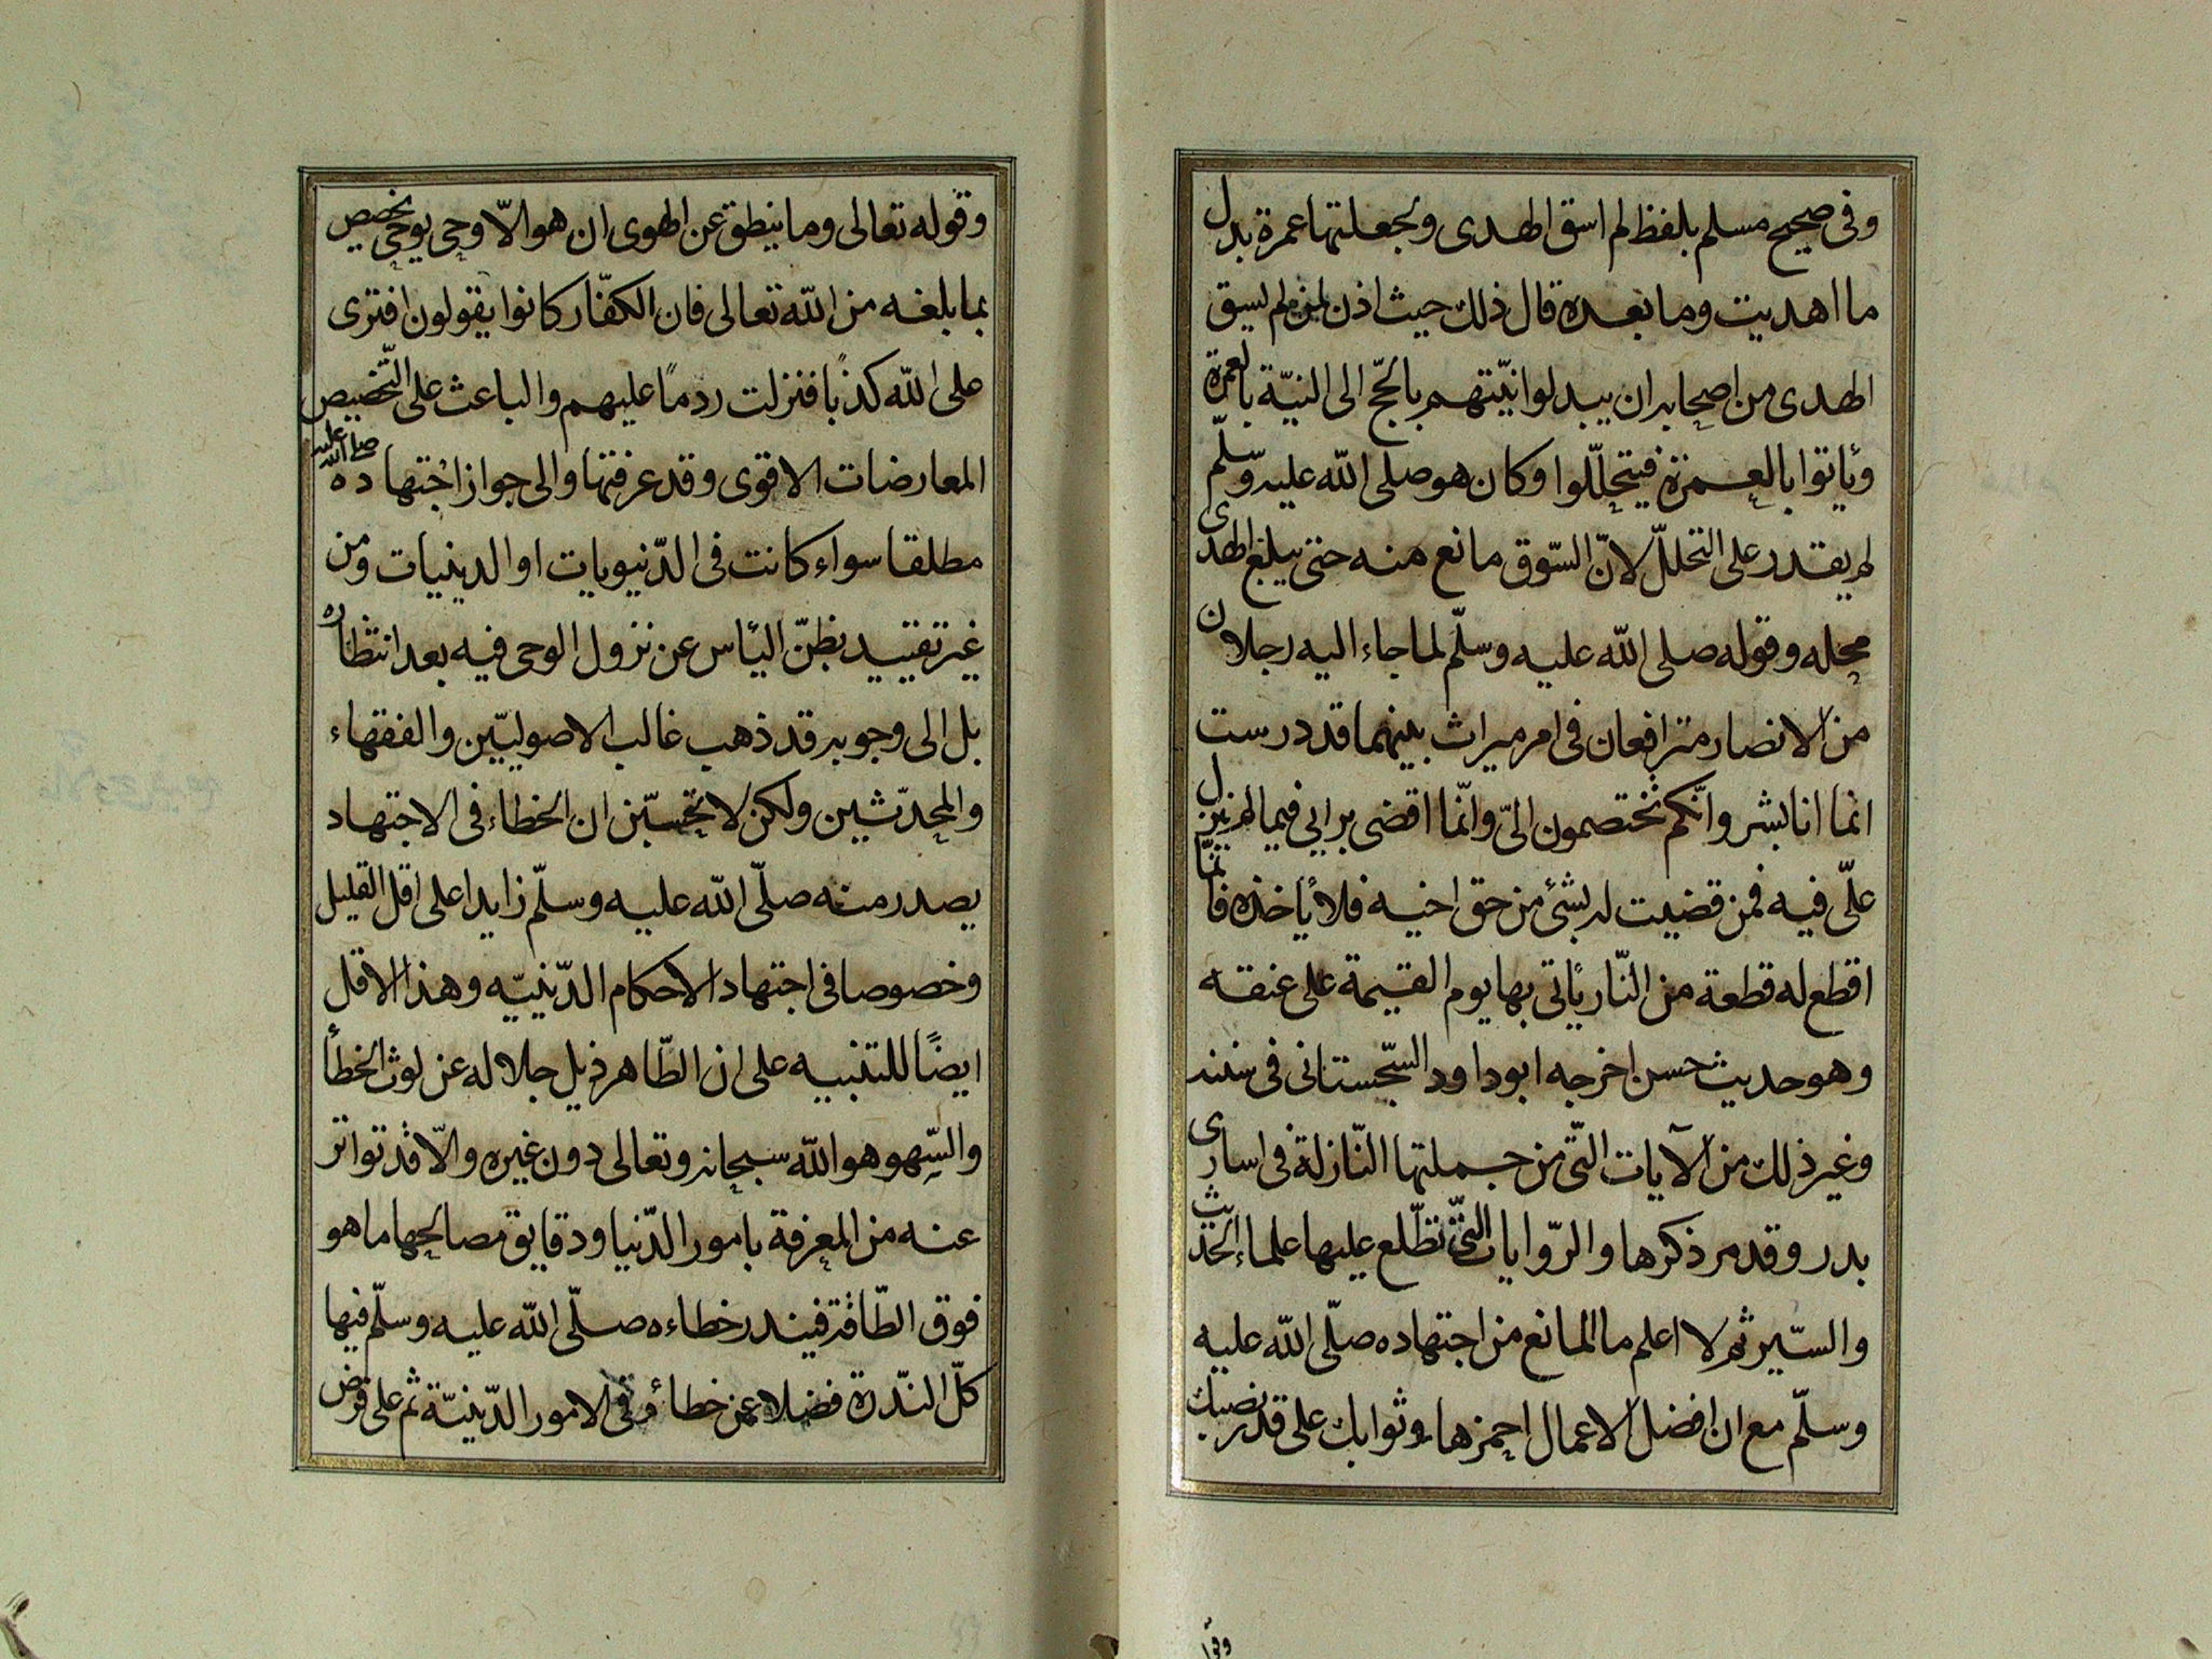 وفى صحيح مسلم بلفظ لم اسق الهدى ولجعلتها عمرة بدل
ما اهديت وما بعده قال ذلك حيث اذن لمن لم يسق
الهدى من اصحابه ان يبدلوا نيّتهم بالحّج الى النيّة بالعمرة
ويأتوا بالعمرة فيتحلّلوا وكان هو صلى الله عليه وسلّم
لم يقدر على التحلل لانّ السّوق مانع منه حتى يبلغ الهدى
محله وقوله صلى الله عليه وسلّم لما جاء اليه رجلان
من الانصار مترافعان فى امر ميراث بينهما قد درست
انما انا بشر وانّكم تختصمون الىّ وانّما اقضى برايى فيما لم ينزل
علّى فيه فمن قضيت له بشئ من حق اخيه فلا يأخذه فانّما
اقطع له قطعة من النّار يأتى بها يوم القيمة على عنقه
وهو حديث حسن اخرجه ابو داود السّجستانى فى سننه
وغير ذلك من الآيات الّتى من جملتها النّازلة فى اسارى
بدر وقد مر ذكرها والرّوايات الّتى تطّلع عليها علماء الحديث
والسّير ثم لا اعلم ما المانع من اجتهاده صلّى الله عليه
وسلّم مع ان افضل الاعمال احمزها وثوابك على قدر نصبك
وقو
وقوله تعالى وما ينطق عن الهوى ان هو الاّ وحى يوحى تخصيص
بما بلغه من الله تعالى فان الكفّار كانوا يقولون افترى
على الله كذبًا فنزلت ردمًا عليهم والباعث على التّخصيص
المعارضات الاقوى وقد عرفتها والى جواز اجتهاده صلى الله عليه
مطلقا سواء كانت فى الدّنيويات او الدينيات ومن
غير تقييد بظنّ اليأس عن نزول الوحى فيه بعد انتظاره
بل الى وجوبه قد ذهب غالب الاصوليّين والفقهاء
والمحدّثين ولكن لا تحسبّن ان الخطاء فى الاجتهاد
يصدر منه صلّى الله عليه وسلّم زايدا على اقل القليل
وخصوصا فى اجتهاد الاحكام الدّينيّه وهذا الاقل
ايضًا للتنبيه على ان الطّاهر ذيل جلاله عن لوث الخطأ
والسّهو هو الله سبحانه وتعالى دون غيره والاّ قد تواتر
عنه من المعرفة بامور الدّنيا ودقايق مصالحها ما هو
فوق الطّاقة فيندر خطاءه صلّى الله عليه وسلّم فيها
كلّ النّدرة فضلا عن خطائه فى الامور الدّينيّة ثم على فرض